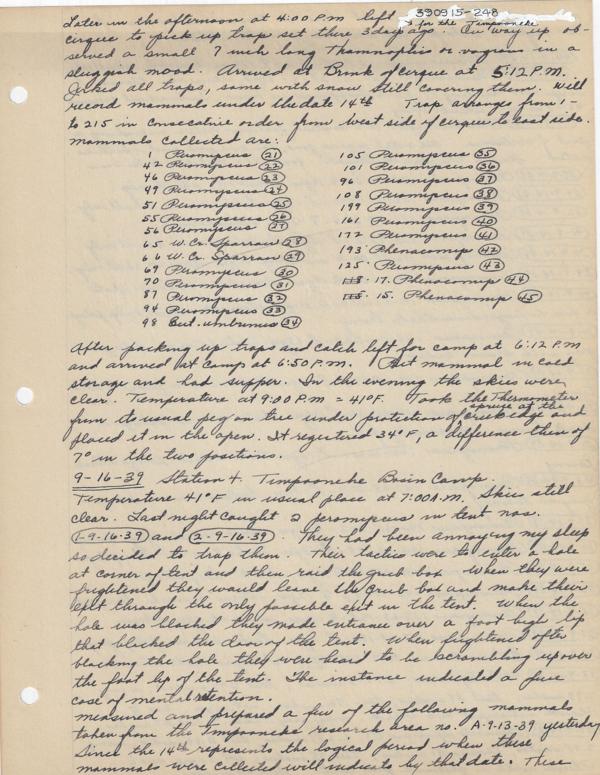 390915-248
Later in the afternoon at 4:00 P.M. left for the Timpooneke
cirque to pick up trap set there 3 days ago. On way up ob-
served a small 7 inch long Thamnophis or vagrans in a
sluggish mood. Arrived at Brink of cirque at 5:12 P.M.
Picked all traps, some with snow still covering them. Will
record mammals under the date 14th Trap arranges from 1-
to 215 in consecutive order from west side of cirque to east side.
Mammals collected are:
1 Peromyscus 21
42 Peromyscus 22
46 Peromyscus 23
49 Peromyscus 24
51 Peromyscus 25
55 Peromyscus 26
56 Peromyscus 27
65 W. Cr. Sparrow 28
66 W. Cr. Sparrow 29
69 Peromyscus 30
70 Peromyscus 31
87 Peromyscus 32
94 Peromyscus 33
98 Eut. umbrinus 34
105 Peromyscus 35
101 Peromyscus 36
96 Peromyscus 37
108 Peromyscus 38
199 Peromyscus 39
161 Peromyscus 40
172 Peromyscus 41
193 Phenacomys 42
125 Peromyscus 43
118. 17. Phenacomys 44
115. 15. Phenacomys 45
After packing up traps and catch left for camp at 6:12 P.M
and arrived at camp at 6:50 P.M. Put mammal in cold
storage and had supper. In the evening the skies were
clear. Temperature at 9:00 P.M = 41°F. Took the Thermometer
from its usual peg on tree under protection of spruce at the creek edge and
placed it in the open. It registered 34°F, a difference then of
7° in the two positions.
9-16-39 Station 4. Timpooneke Basin Camp.
Temperature 41°F in usual place at 7:00 A.M. Skies still
clear. Last night caught 2 peromyscus in tent nos.
1-9-16-39 and 2-9-16-39. They had been annoying my sleep
so decided to trap them. Their tactics were to enter a hole
at corner of tent and then raid the grub box When they were
frightened they would leave the grub box and make their
exit through the only possible exit in the tent. When the
hole was blocked they made entrance over a foot high lip
that blocked the door of the tent. When frightened after
blocking the hole they were heard to be scrambling up over
the foot lip of the tent. The instance indicated a fine
case of mental retention.
Measured and prepared a few of the following mammals
taken from the Timpooneke research area no. A-9-13-39 yesterday
Since the 14th represents the logical period when these
mammals were collected will indicate by that date. These